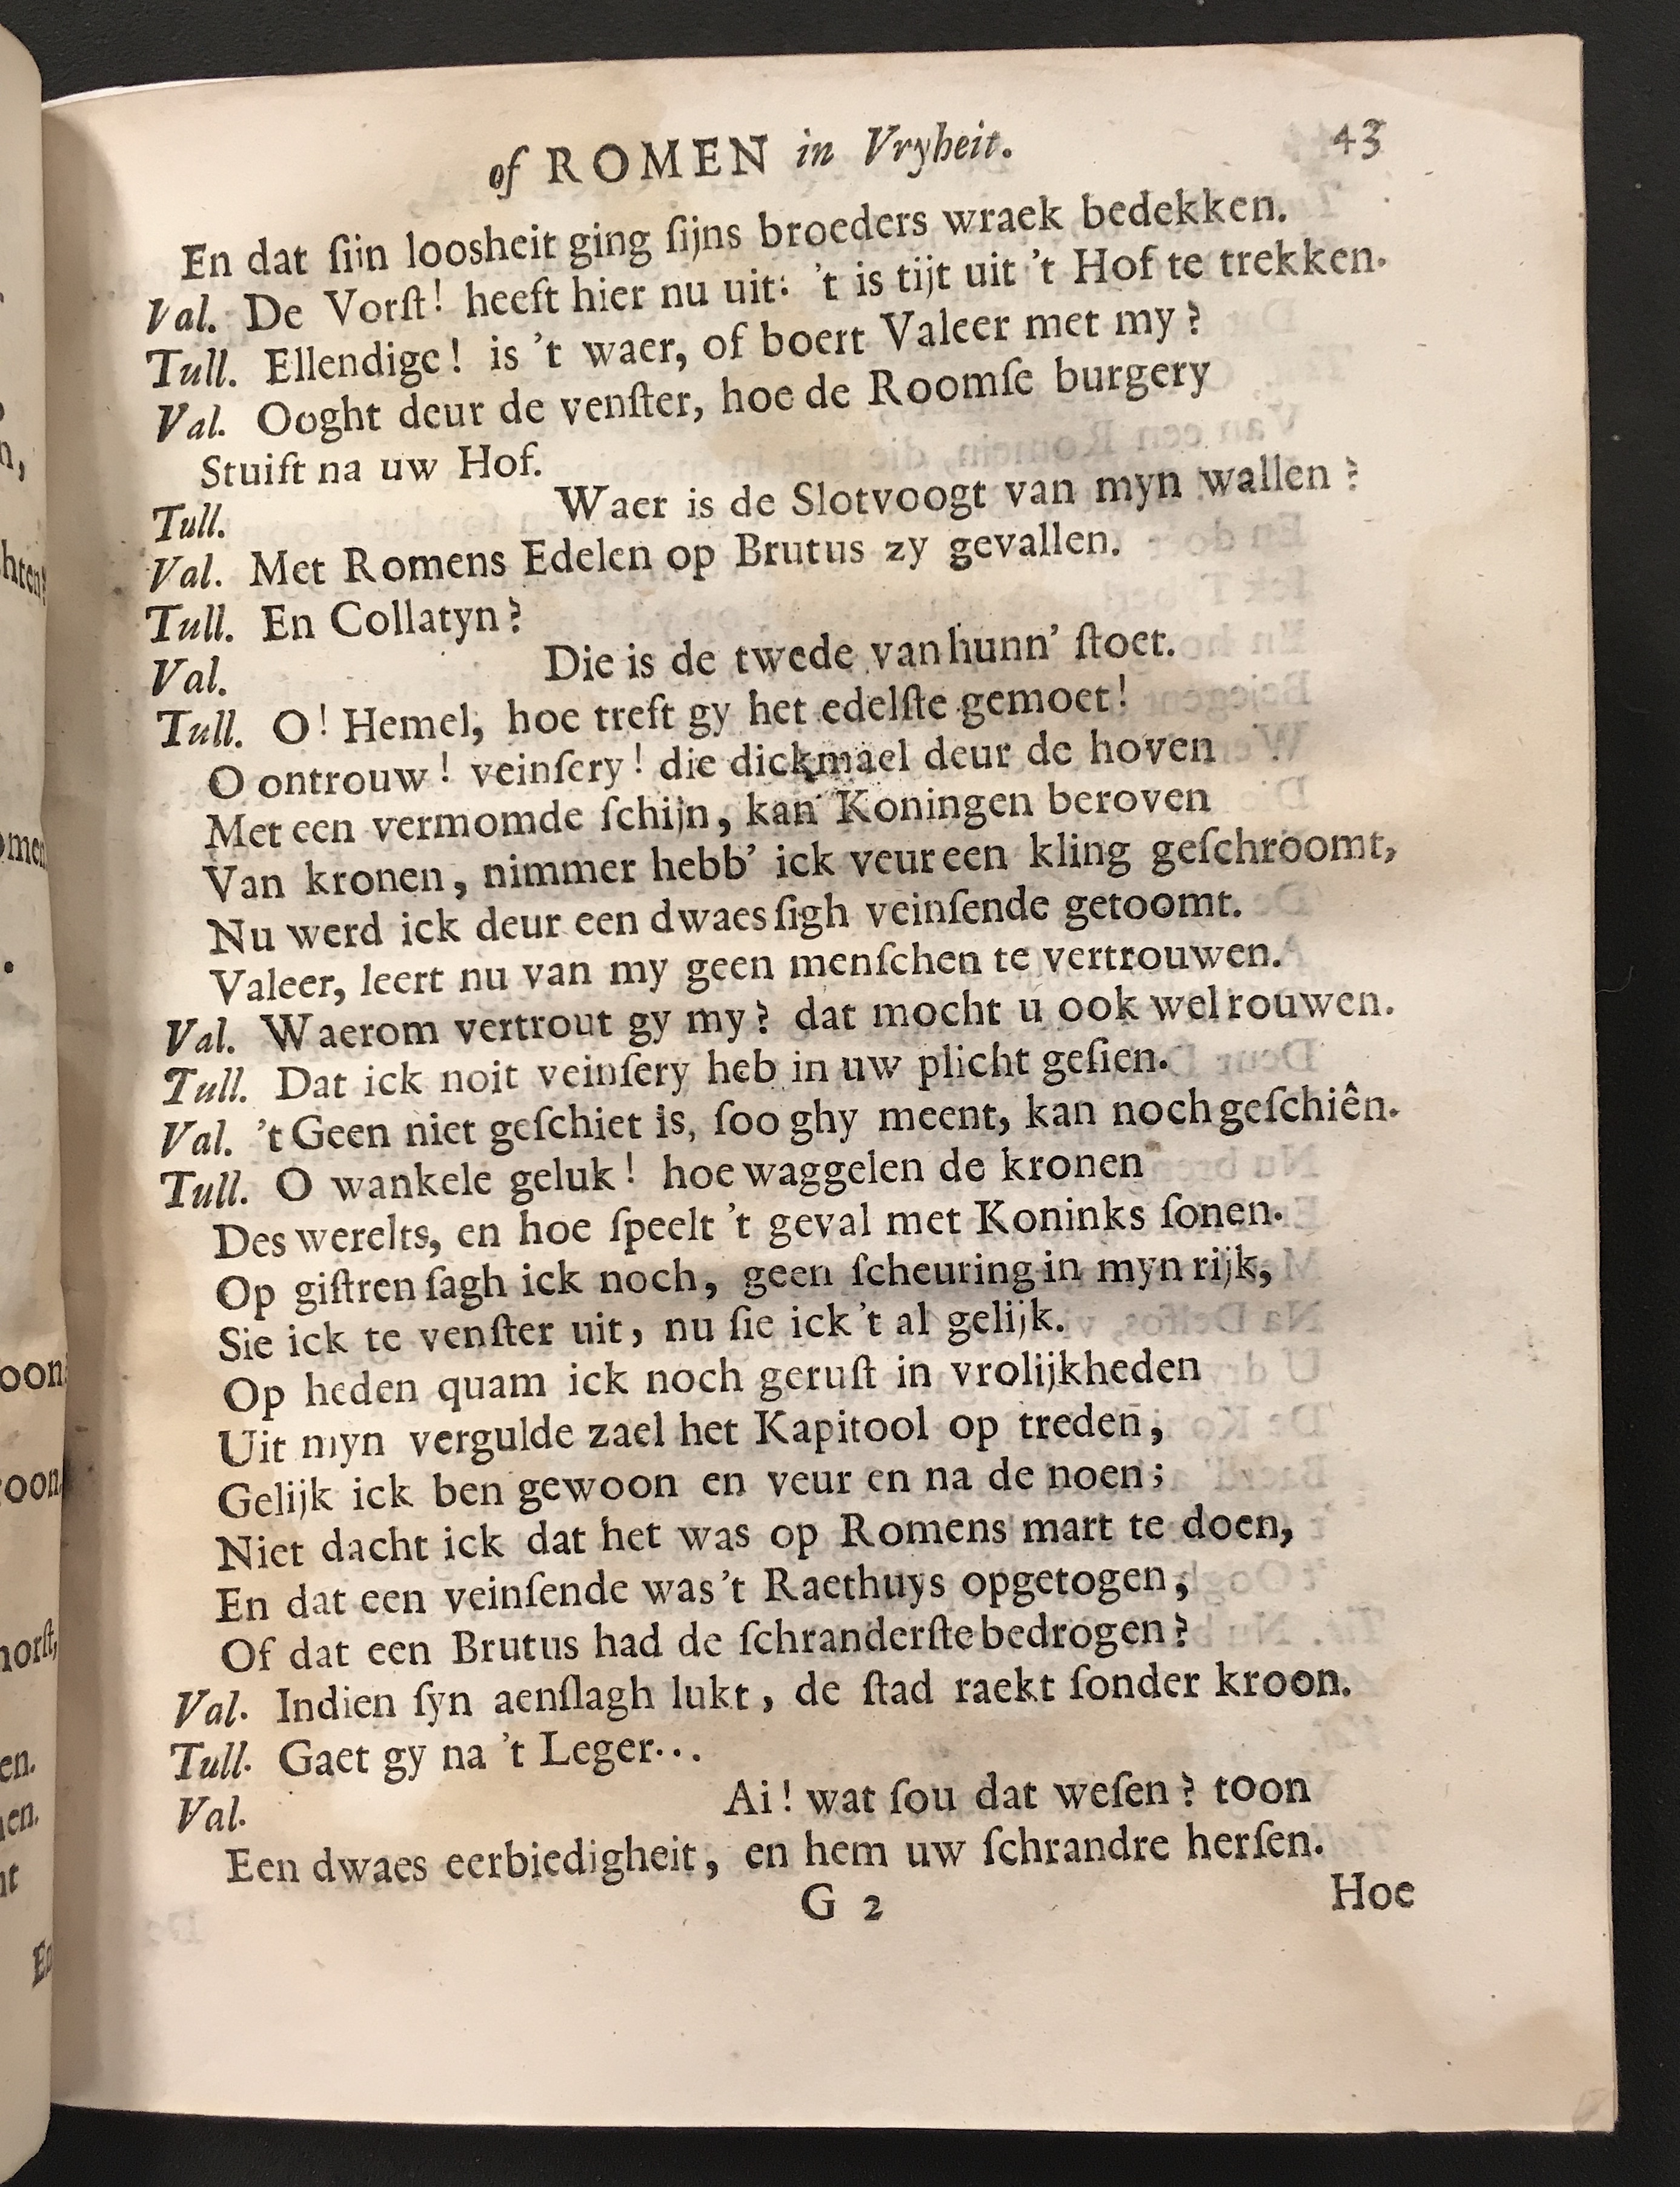 of ROMEN in Vryheit. 43
En dat ſiin loosheit ging ſijns broeders wraek bedekken.
Val. De Vorſt! heeft hier nu uit: 't is tijt uit 't Hof te trekken.
Tull. Ellendige! is 't waer, of boert Valeer met my?
Val. Ooght deur de venſter, hoe de Roomſe burgery
Stuift na uw Hof.
Tull. Waer is de Slotvoogt van myn wallen?
Val. Met Romens Edelen op Brutus zy gevallen.
Tull. En Collatyn?
Val. Die is de twede van hunn' ſtoet.
Tull. O! Hemel, hoe treft gy het edelſte gemoet!
O ontrouw! veinſery! die dickmael deur de hoven
Met een vermomde ſchijn, kan Koningen beroven
Van kronen, nimmer hebb' ick veur een kling geſchroomt,
Nu werd ick deur een dwaes ſigh veinſende getoomt.
Valeer, leert nu van my geen menſchen te vertrouwen.
Val. Waerom vertrout gy my? dat mocht u ook wel rouwen.
Tull. Dat ick noit veinſery heb in uw plicht geſien.
Val. 't Geen niet geſchiet is, ſoo ghy meent, kan noch geſchiên.
Tull. O wankele geluk! hoe waggelen de kronen
Des werelts, en hoe ſpeelt 't geval met Koninks ſonen.
Op giſtren ſagh ick noch, geen ſcheuring in myn rijk,
Sie ick te venſter uit, nu ſie ick 't al gelijk.
Op heden quam ick noch geruſt in vrolijkheden
Uit myn vergulde zael het Kapitool op treden,
Gelijk ick ben gewoon en veur en na de noen;
Niet dacht ick dat het was op Romens mart te doen,
En dat een veinſende was 't Raethuys opgetogen,
Of dat een Brutus had de ſchranderſte bedrogen?
Val. Indien ſyn aenſlagh lukt, de ſtad raekt ſonder kroon.
Tull. Gaet gy na 't Leger...
Val. Ai! wat ſou dat weſen? toon
Een dwaes eerbiedigheit, en hem uw ſchrandre herſen.
G 2 Hoe